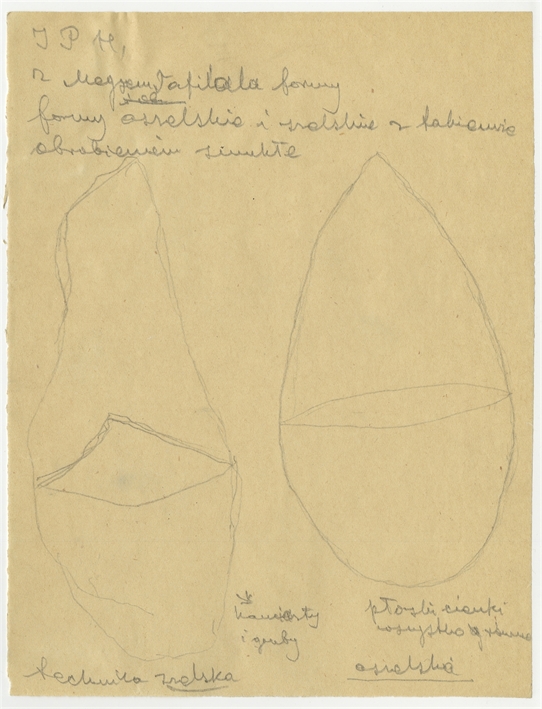 I P H,
z Magom Tafilala formy
formy aszelskie i szelskie z takiemże
obrobieniem smukłe
kanciasty
i gruby
płaski cienki
wszystko
technika szelska
aszelska